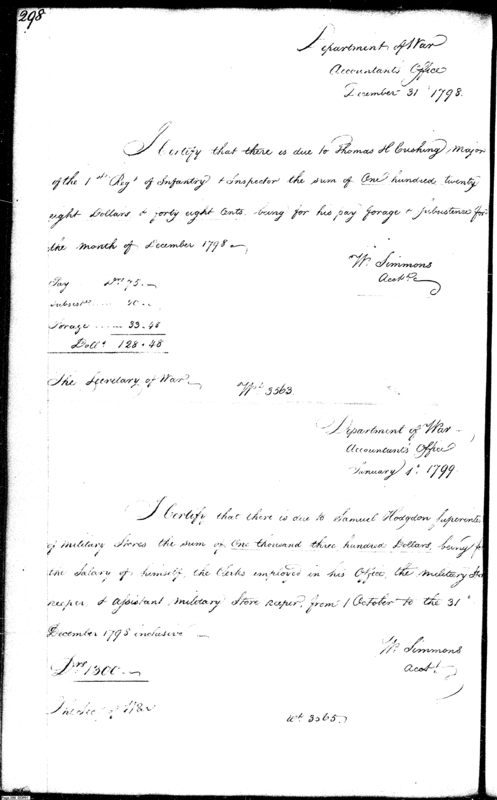 298
Department of War
Accountant's Office
December 31st 1798.
I Certify that there is due to Thomas H Cushing, Major
of the 1st Regt of Infantry & Inspector the sum of One hundred twenty
eight Dollars & forty eight Cents being for his pay forage & subsistence for
the month of December 1798
Wm Simmons
Acct
Pay Drs 75.
Subsist 20.
Forage 33.48
Dolls 128.48
The Secretary of War
Wt 3563
Department of War
Accountant's Office
January 4th 1799
I Certify that there is due to Samuel Hodgdon Superinten
of military Stores the sum of One thousand three hundred Dollars, being f
the Salary of himself, the Clerks employed in his Office, the military Sto
keeper, & assistant military Store keeper, from 1 October to the 31st
December 1798 inclusive
Wm Simmons
Acct
Drs 1300
The Sec of War
Wt 3565